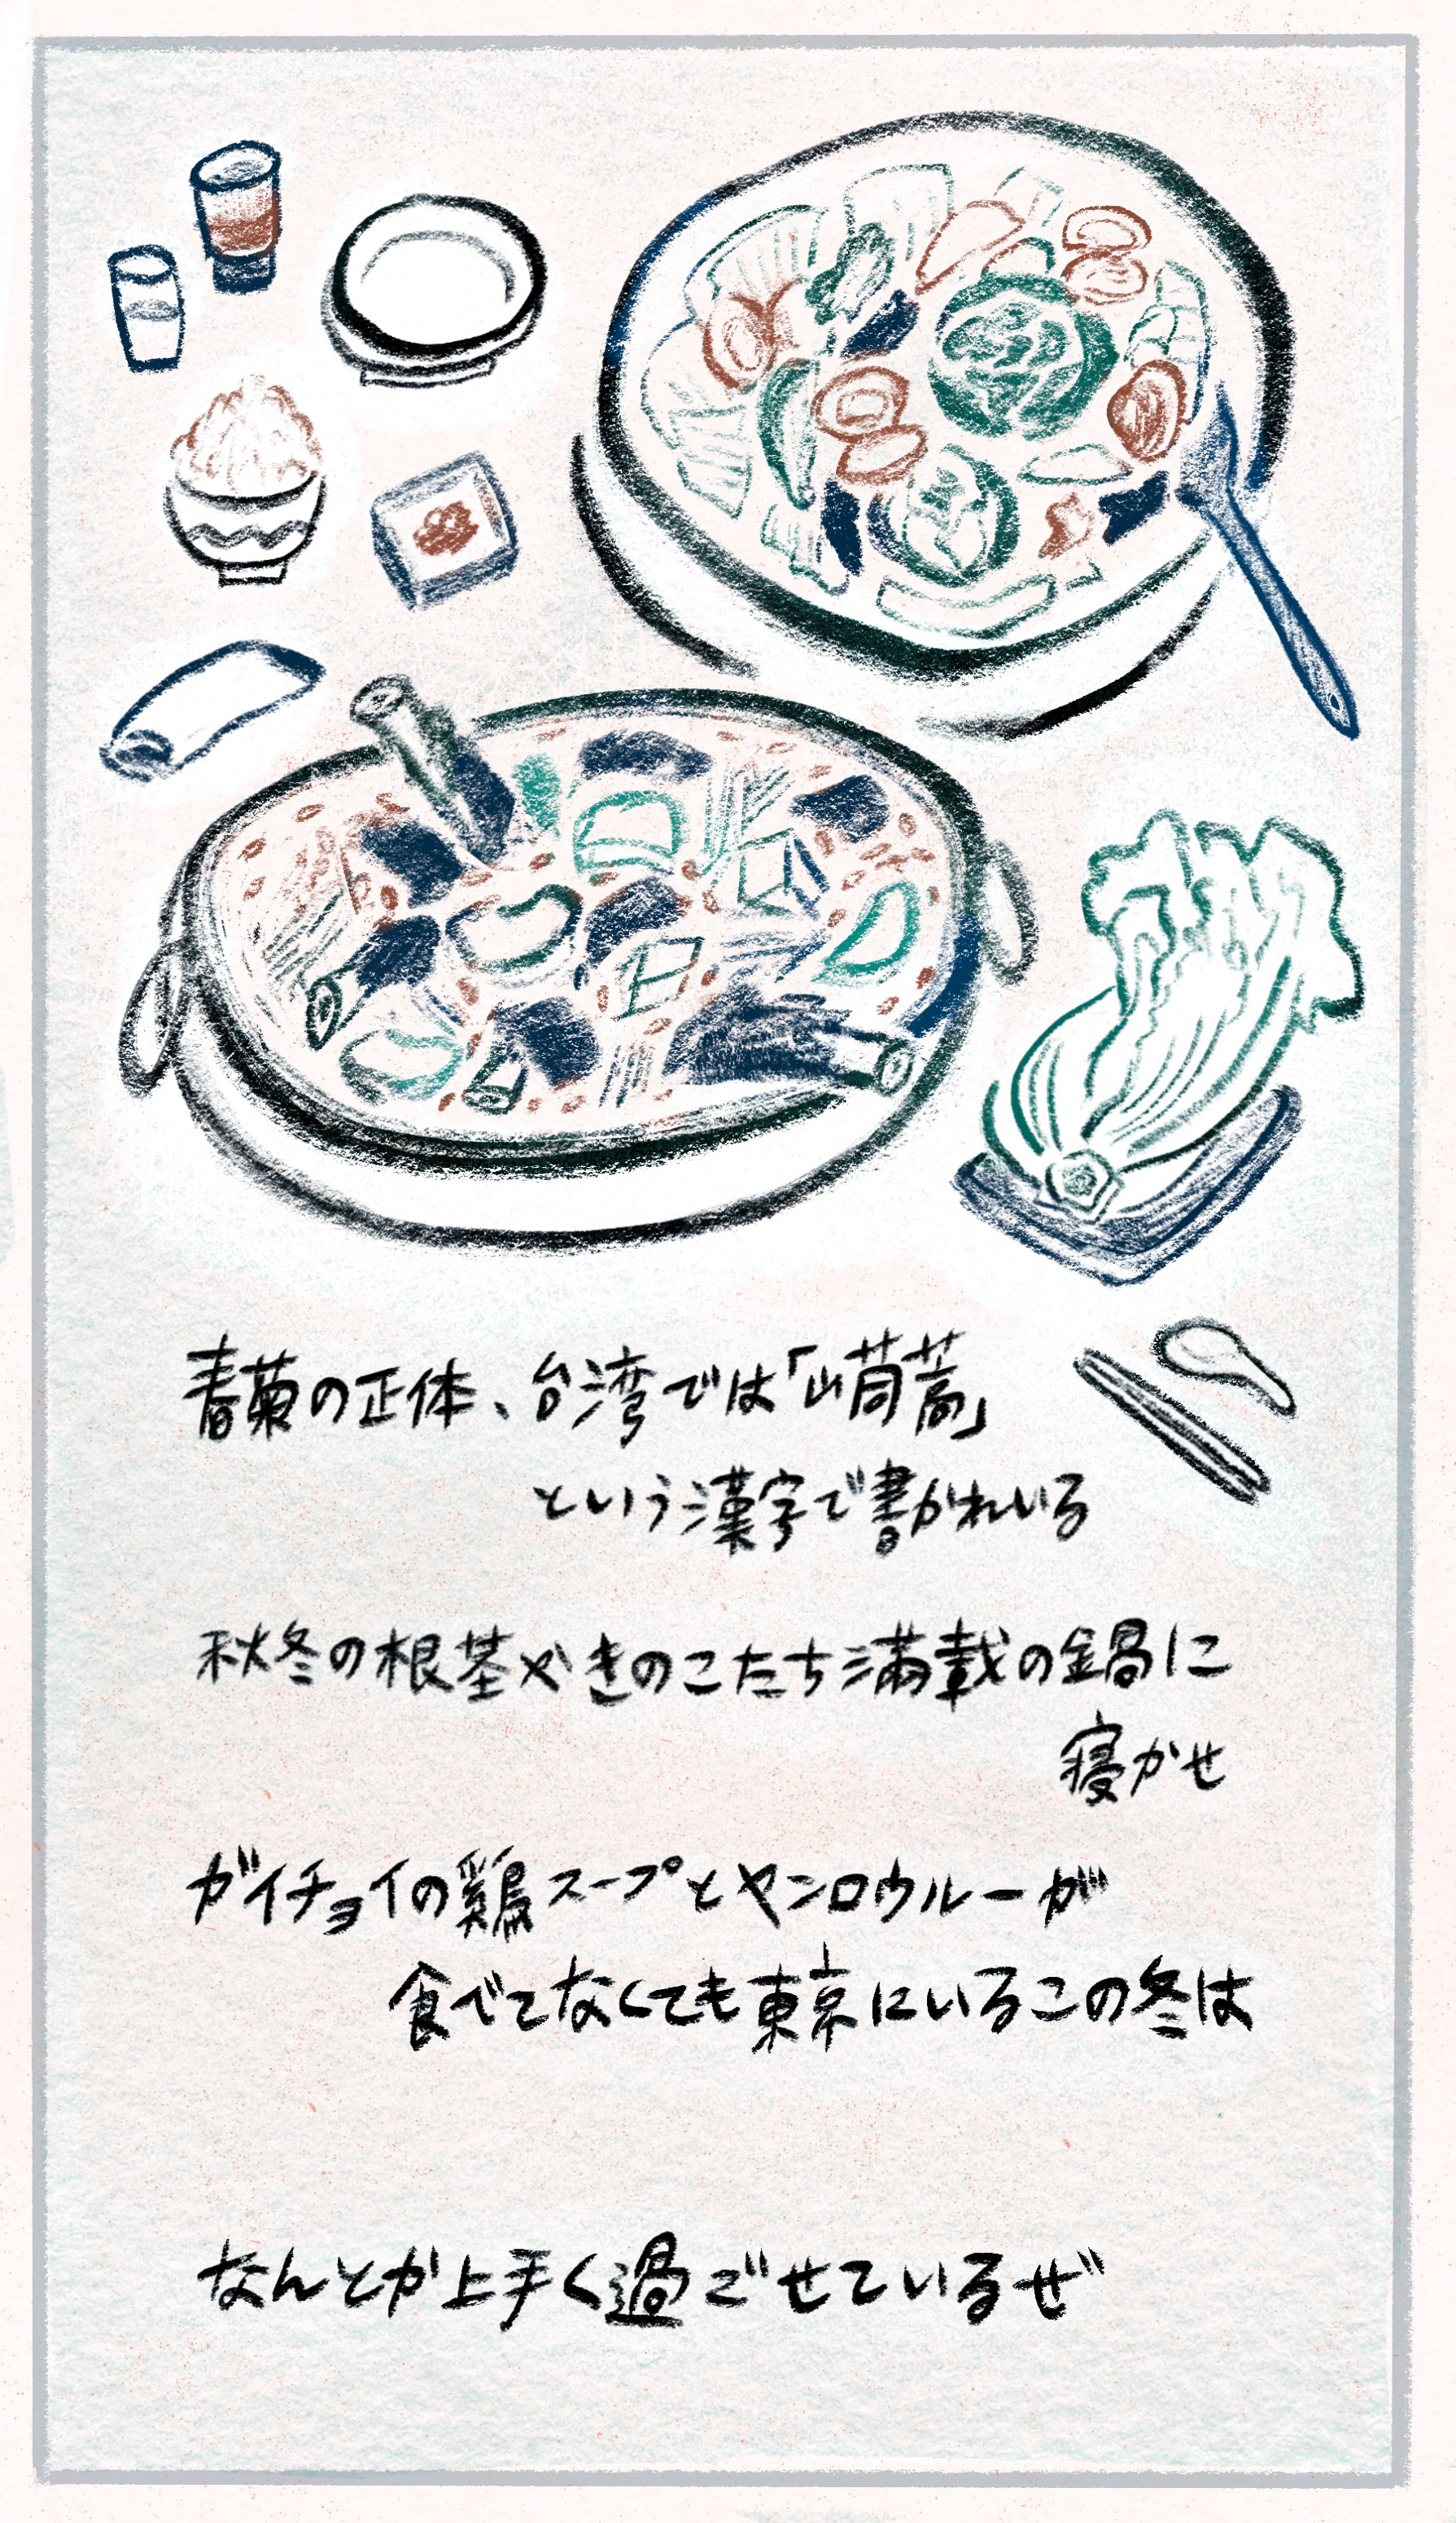 春菊の正体、台湾では「山茼蒿」
という漢字で書かれいる
秋冬の根茎やきのこたち満載の鍋に
寝かせ
ガイチョイの鶏スープとヤンロウルーが
食べてなくても東京にいるこの冬は
なんとか上手く過ごせているぜ